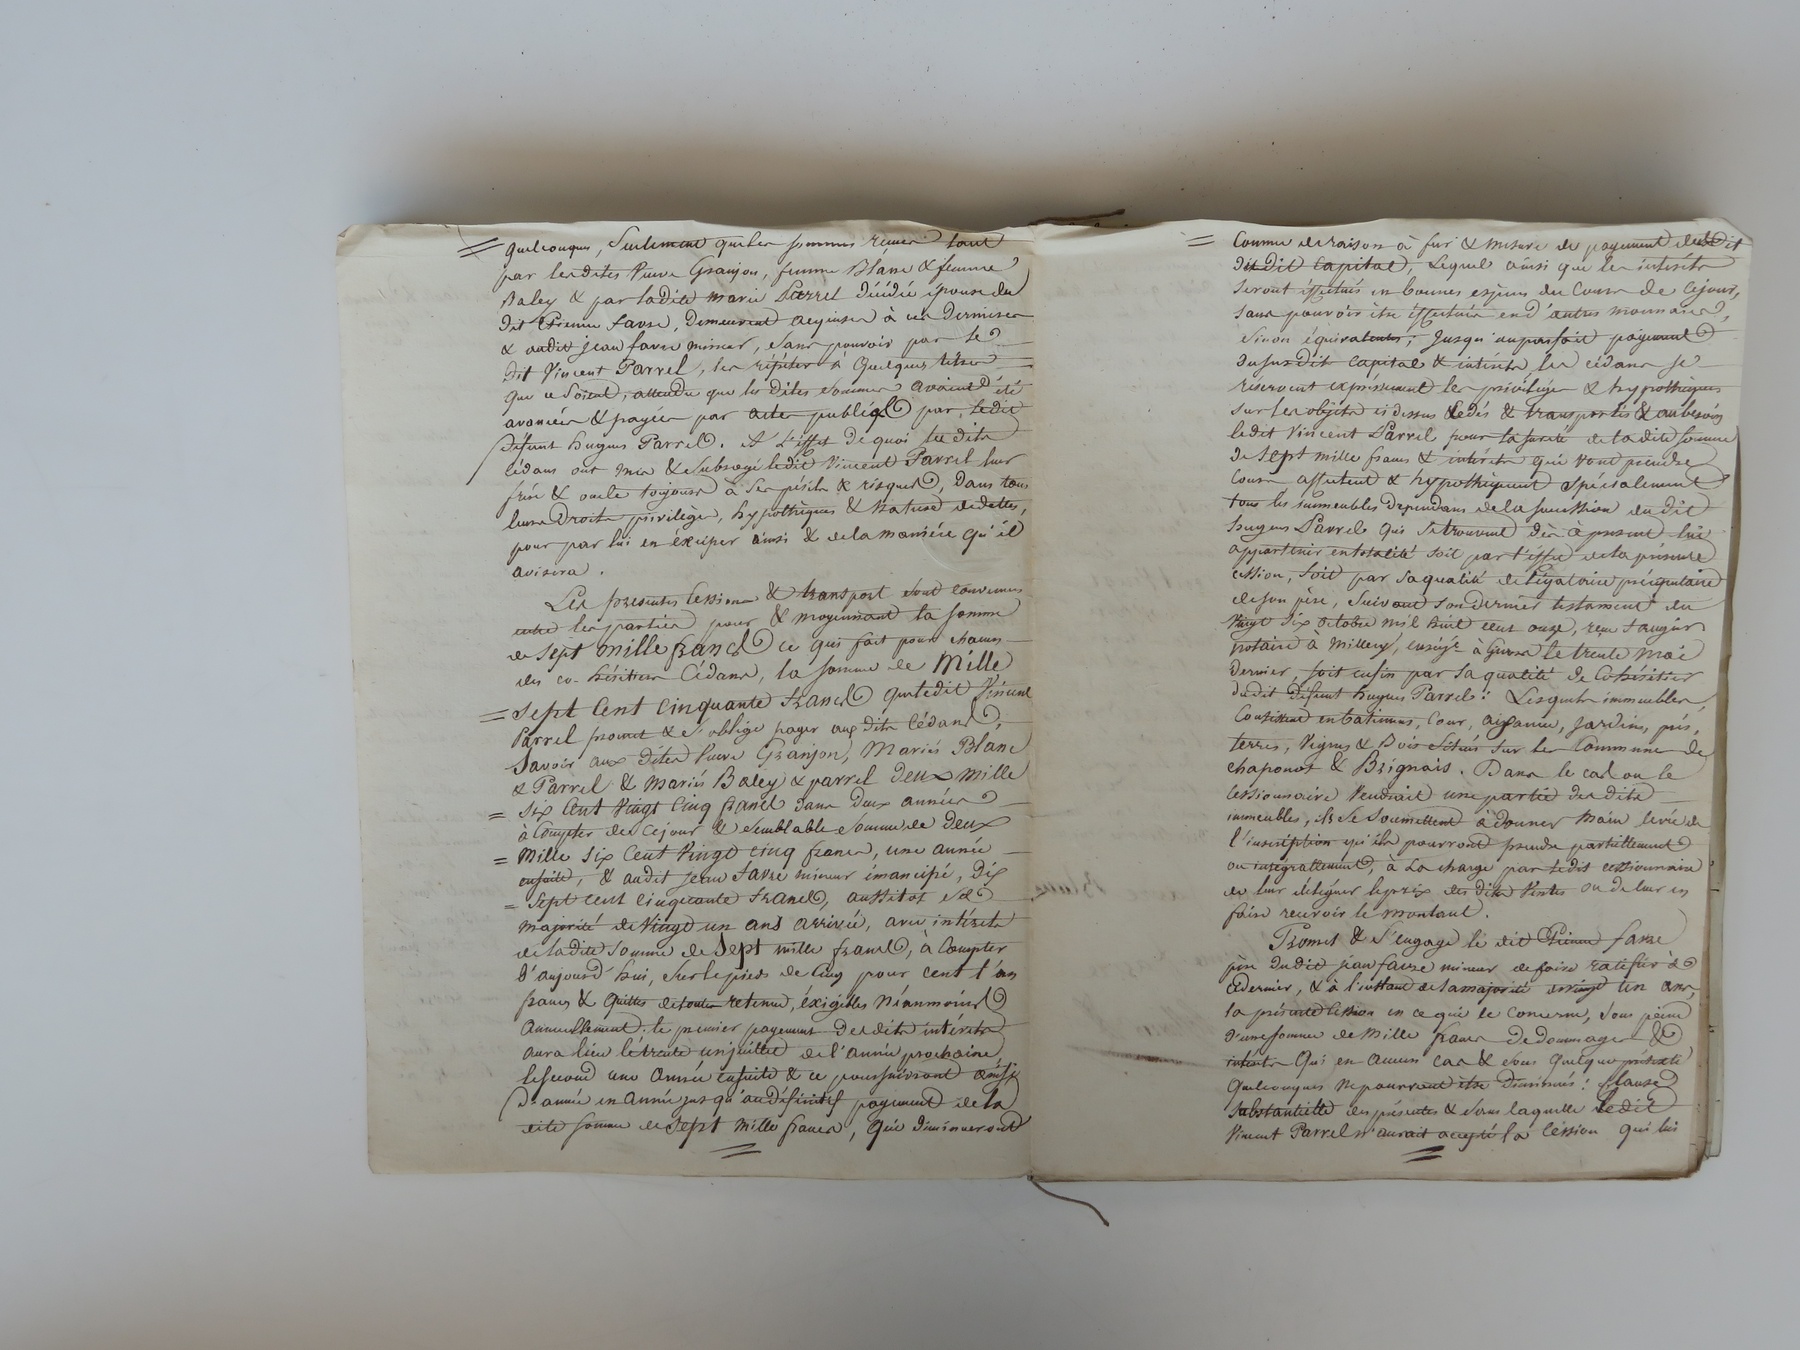 quelconques, Seulement que les sommes reçues tant
par les dites Veuve Granjon, femme Blanc & femme
Baley & par ladite marie Parrel décédée épouse du
dit Etienne favre, demeurent acquises à ces dernieres
& audit jean favre mineur, sans pouvoir par le
dit Vincent Parrel, les répéter à Quelques titres
que ce Soient, attendu que les dites sommes avaient été
avancées & payées par actes publics par ledit
défunt hugues Parrel. A L'effet de quoi les dits
cédans ont mis & subrogé ledit Vincent Parrel leur
frère & oncle toujours à ses périls & risques, Dans tous
leurs Droits privilèges, hypothèques & Nature de dettes,
pour par lui en éxciper ainsi & de la manière qu'il
avisera.
Les presentes Cessions & transport sont convenus
entre les parties pour & moyennant la somme
de Sept mille francs ce qui fait pour chacun
des co-héritiers Cédans, la somme de Mille
Sept Cent Cinquante francs que ledit Vincent
Parrel promet & s'oblige payer aux dits Cédans,
Savoir aux dites Veuve Granjon, Mariés Blanc
& Parrel & Mariés Baley & parrel Deux Mille
Six Cent Vingt Cinq francs dans Deux années
à Compter de Cejour & semblable Somme de Deux
Mille Six Cent Vingt Cinq francs, une année
ensuite, & audit jean favre mineur émancipé, Dix
Sept cent Cinquante francs, aussitôt sa
majorité de Vingt un ans arrivée, avec intérets
de ladite somme de Sept mille francs, à Compter
d'aujourd'hui, sur le pied de Cinq pour cent l'an
francs & Quittes de toutes retenues, éxigibles Néanmoins
Annuellement. le premier payement desdits intérets
aura lieu le trente un juillet de l'année prochaine
le second une Année ensuite & ce poursuivront ainsi
d'année en Année jusqu'au définitif payement de la
dite somme de Sept mille francs, Qui diminueront
Comme de raison à fur & mesure de payement dudit
dudit Capital, Lequel ainsi que les intérets
seront éffectués en bonnes espèces du Cours de Cejour,
sans pouvoir être éffectués en d'autres monnaies,
Sinon équivalentes; Jusqu'au parfait payement
du susdit Capital & intérêts les cédans se
réservent expressément les privilèges & hypothèques
sur les objets ci dessus Cédés & transportés & au besoin
ledit Vincent Parrel pour la sureté de ladite somme
de Sept mille francs & intérets qui vont prendre
Cours affectent & hypothèquent Spécialement
tous les immeubles Dependans de la succession du dit
hugues Parrel Qui se trouvent dès à présent lui
appartenir en totalité soit par l'effet de la présente
cession, soit par sa qualité de légataire préciputaire
de son père, suivant son dernier testament du
Vingt Six octobre mil huit cent onze, reçu
notaire à Millery, enregistré à Givors le trente Mai
dernier, soit enfin par sa qualité de Cohéritier
dudit defunt hugues Parrel: Lesquels immeubles,
Consistent en batimens, Cour, aisances, jardins, prés,
terres, Vignes & Bois Situés sur les Communes de
chaponost & Brignais. Dans le cas ou le
cessionnaire Vendrait une partie des dits
immeubles, ils se soumettent à donner Main levée de
l'inscription qu'ils pourront prendre partiellement
ou intégrallement, à La charge par ledit cessionnaire
de leur déléguer le prix des dites Ventes ou de leur en
faire recevoir le montant.
Promet & S'engage le dit Etienne favre
père dudit jean favre mineur de faire ratifier à
ce dernier, & à l'instant de la majorité de vingt un ans,
la présente Cession en ce qui le Concerne, sous peine
d'une somme de Mille francs De dommages &
intérêts Qui en aucun cas & sous Quelque prétexte
Quelconques ne pourront être diminués: Clause
Substantielle des présentes & sans laquelle ledit
Vincent Parrel n'aurait accepté la Cession qui lui